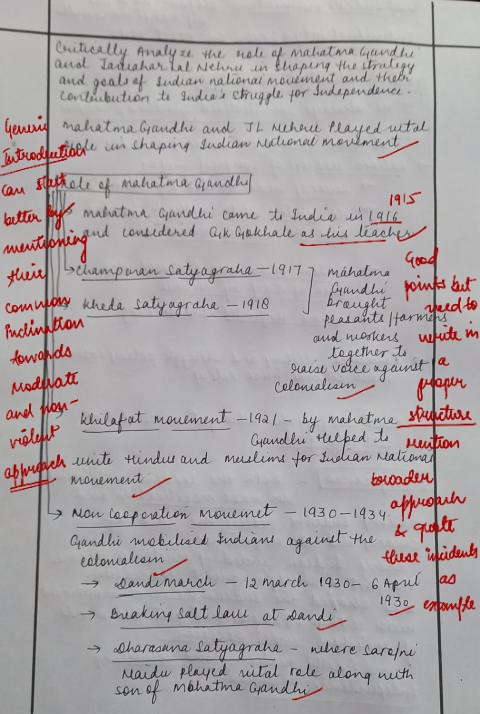 Critically Analyze the role of Mahatma Gandhi
and Jawahar lal Nehru in shaping the strategy
and goals of Indian national movement and their
contribution to India's struggle for Independence.
Mahatma Gandhi and JL Nehru Played vital
role in shaping Indian National movement
Role of Mahatma Gandhi
1915
Mahatma Gandhi came to India in 1916
and considered G.K Gokhale as his teacher
Champaran Satyagraha - 1917
Kheda Satyagraha - 1918
Mahatma
Gandhi
brought
peasants/farmers
and workers
together to
raise voice against
colonialism
Khilafat movement - 1921 - by Mahatma
Gandhi Helped to
unite Hindus and Muslims for Indian National
movement
Non Cooperation Movemnet - 1930-1934
Gandhi mobilised Indians against the
colonialism
→ Dandi March - 12 march 1930 - 6 April
1930
→ Breaking Salt law at Dandi
→ Dharasana Satyagraha - where Sarojni
Naidu Played vital role along with
son of Mahatma Gandhi
Generic
Introduction
can start
better by
mentioning
their
common
Inclination
towards
Moderate
and non-
violent
approach
Good
points but
need to
write in
a
proper
structure
Mention
broader
approach
& quote
these incidents
as
example